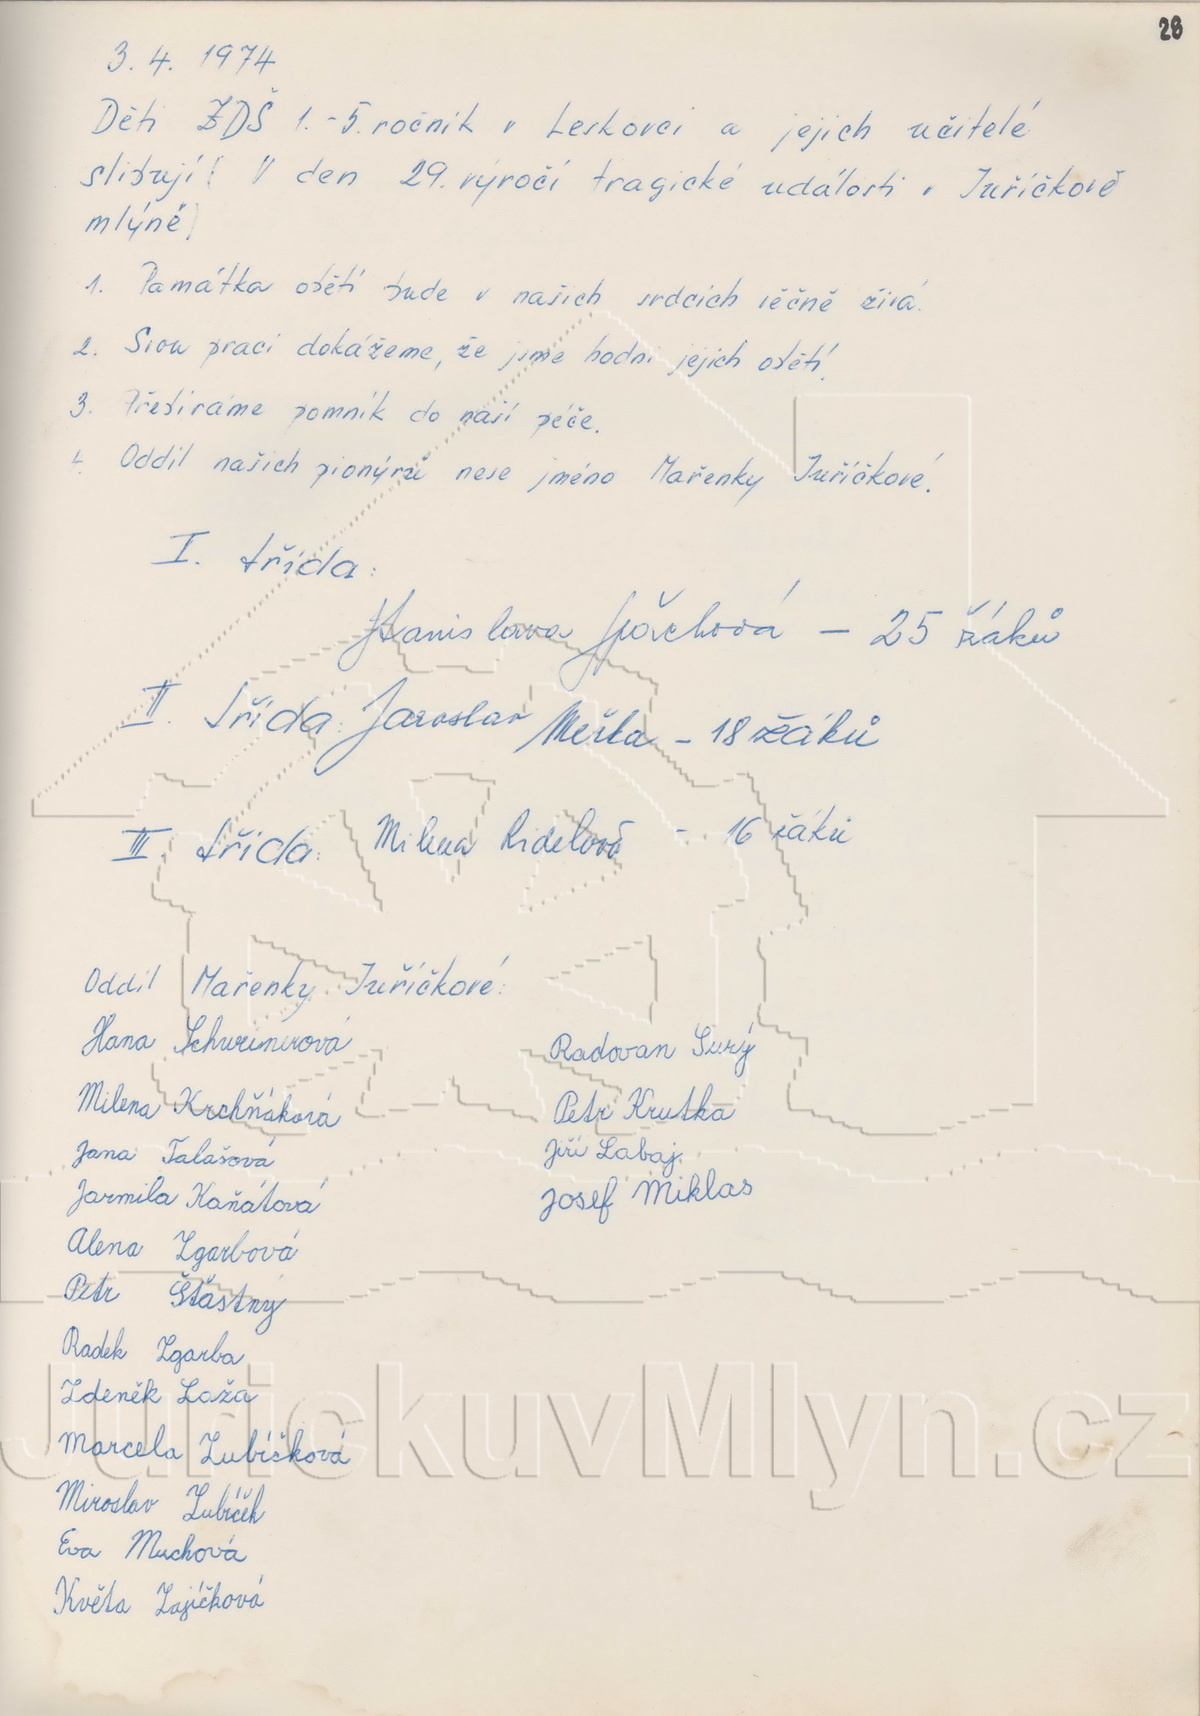 28
3. 4. 1974
Děti ZDŠ 1.-5. ročník v Leskovci a jejich učitelé
slibují! V den 29. výročí tragické události v Juříčkově
mlýně!
1. Památka obětí bude v našich srdcích věčně živá.
2. Svou prací dokážeme, že jsme hodni jejich obětí!
3. Přebíráme pomník do naší péče.
4. Oddíl našich pionýrů nese jméno Mařenky Juříčkové.
I. třída:
Stanislava - 25 žáků
II. třída: Jaroslav - 18 žáků
III. třída: Milena - 16 žáků
Oddíl Mařenky Juříčkové:
Hana
Milena Krchňáková
Jana Talašová
Jarmila Kaňátová
Alena Zgarbová
Petr Šťastný
Radek Zgarba
Zdeněk Loža
Marcela Zubíčková
Miroslav Zubíček
Eva Muchová
Květa Zajíčková
Radovan Surý
Petr Krutka
Jiří Labaj
Josef Miklas
JurickuvMlyn.cz